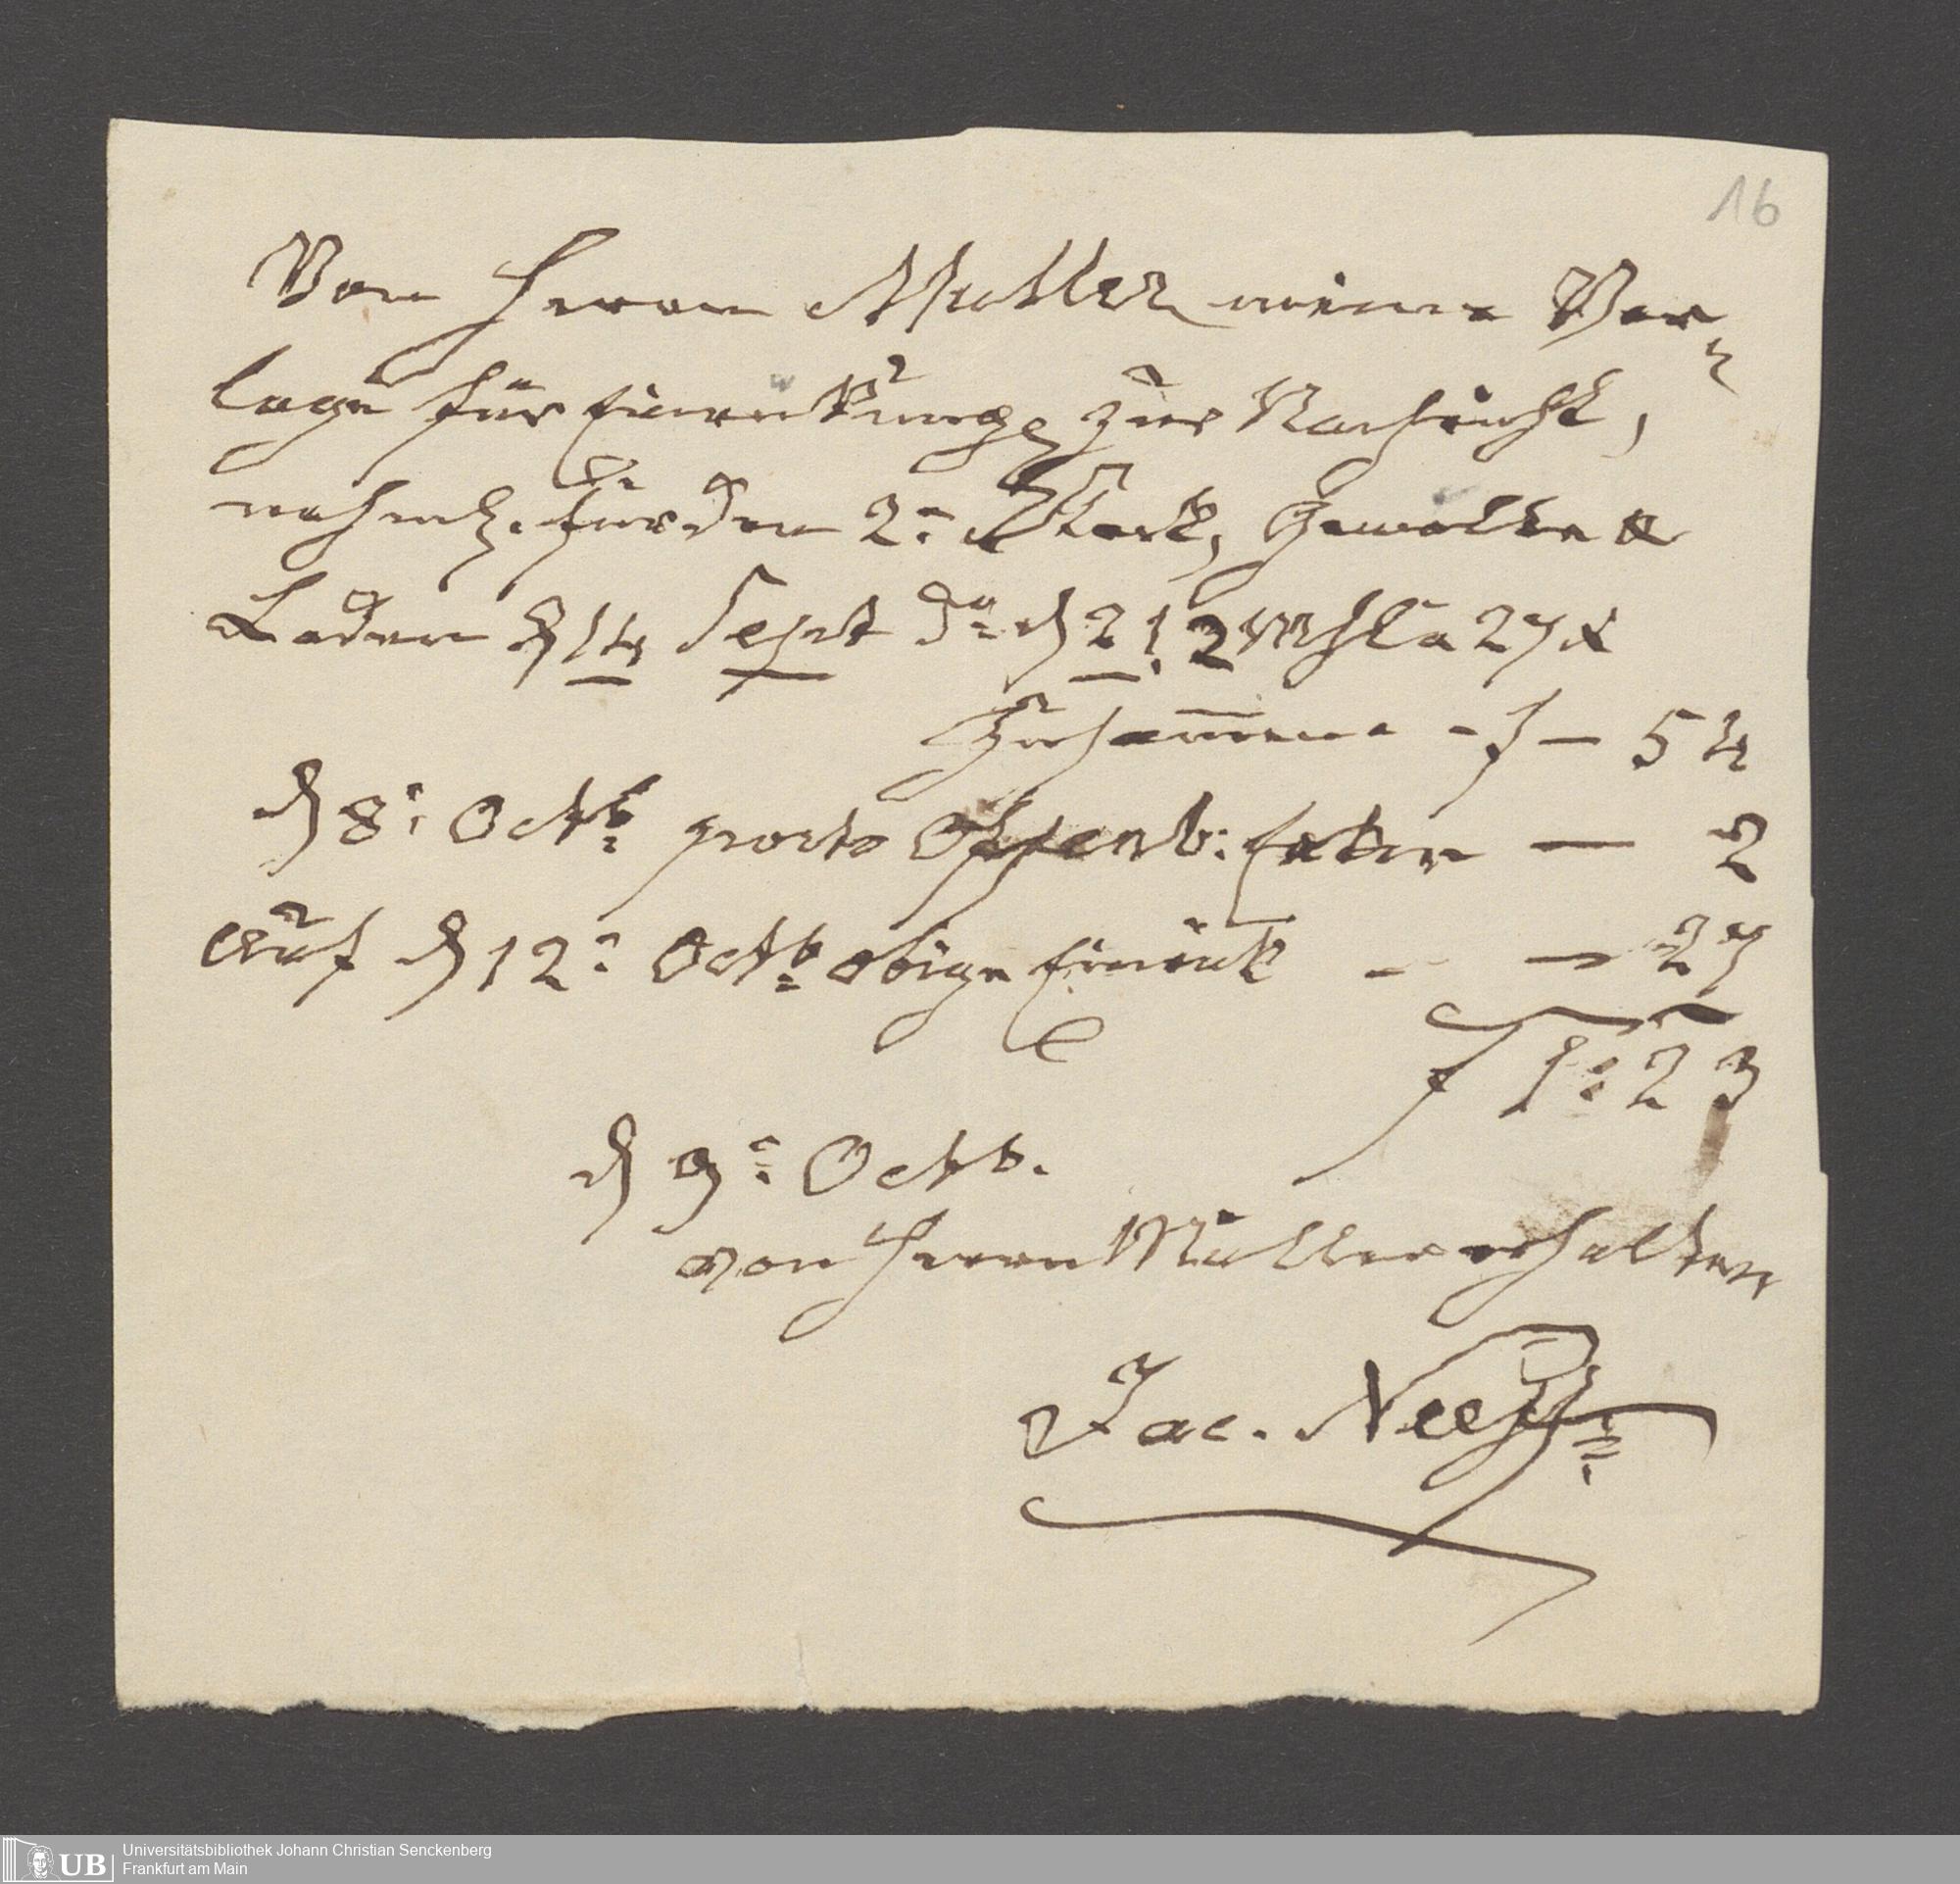 16
Von Herrn Muller meine Ver-
lage für Einrükung zur Nachricht,
nehml. für den 2n Stock, Gewölbe &
Laden d 14 Sept do d 21. 2 Mhl a 27 x
Zusam̅en - f — 54
d 8: Octb porto Offenb: — 2
auf d 12: Octb obige Einrük - — 27
f 1:23
d 9: Octb.
von Herrn Müller erhalten
Jac.
Universitätsbibliothek Johann Christian Senckenberg
Frankfurt am Main
UB